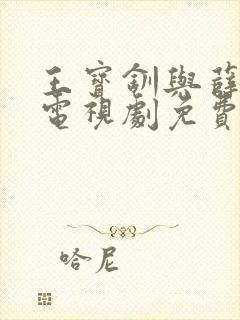 王寶釧與薛
電視劇免費
哈尼